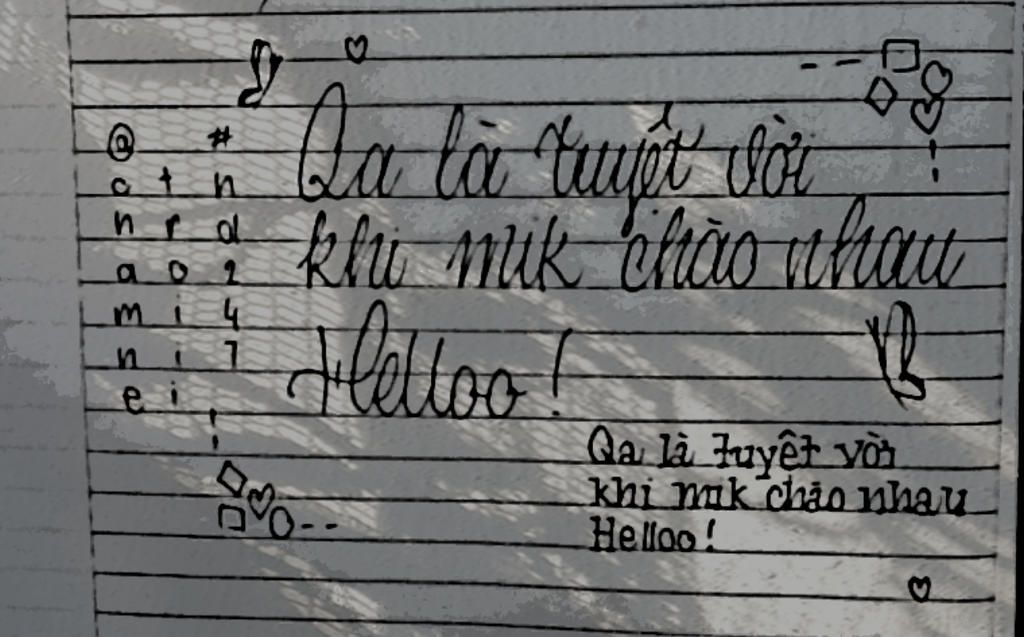 @ #
c t n
n r d
a o 2
m i 4
n i 7
e i
Qa là tuyệt vời
khi mik chào nhau
Helloo!
Qa là tuyệt vời
khi mik chào nhau
Helloo!